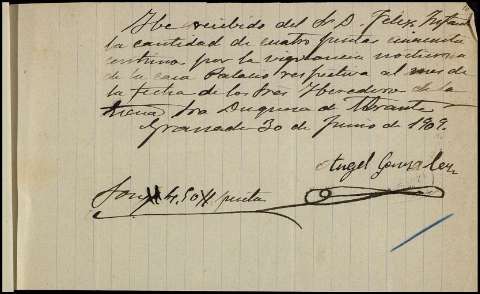 He recibido del Sr D. Felix Infan
la cantidad de cuatro psetas cincuenta
centimos por la vigilancia nocturna
de la casa Palacio respectiva al mes de
la fecha de los Sres Herederos de la
Sra Duquesa de Abrante
Granada 30 de Junio de 1909.
Angel Gonzalez
Son # 4,50 # pseta